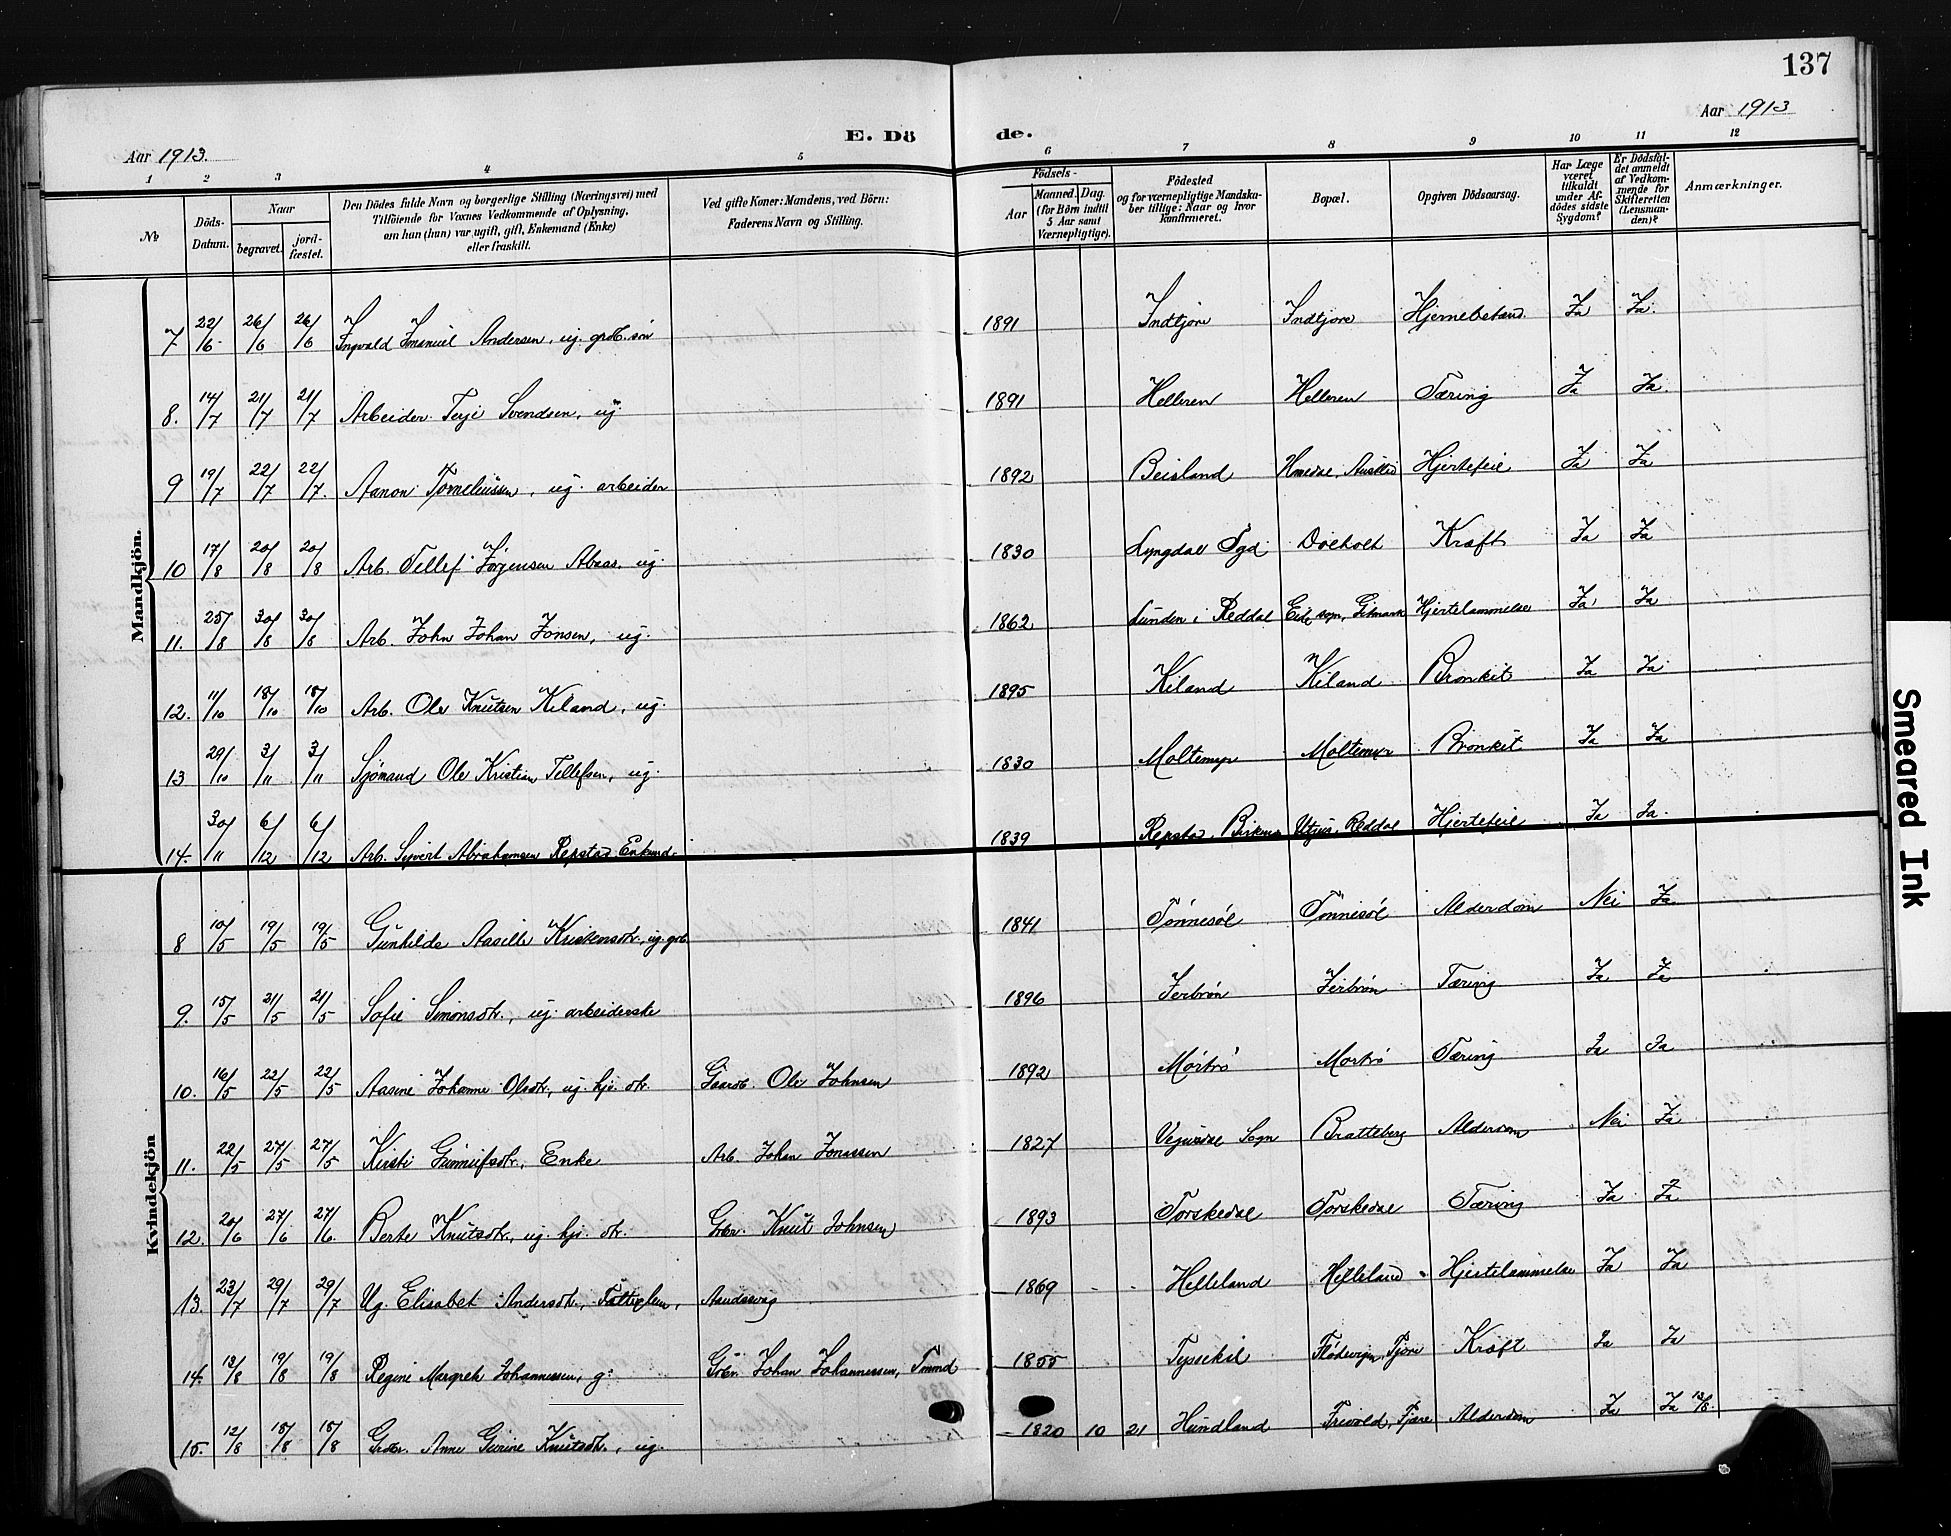 137
Aar 1913.
E. Dö de.
Aar 1913
1 2 3 4 5 6 7 8 9 10 11 12
No
Döds-Datum.
Naar
begravet.
jord-fæstet.
Den Dödes fulde Navn og borgerlige Stilling (Næringsvei) med
Tilföiende for Voxnes Vedkommende af Oplysning,
om han (hun) var ugift, gift, Enkemand (Enke)
eller fraskilt.
Ved gifte Koner: Mandens, ved Börn:
Faderens Navn og Stilling.
Födsels-
Aar
Maaned. Dag.
(for Börn indtil
5 Aar samt
Værnepligtige).
Födested
og for værnepligtige Mandska-
ber tillige: Naar og hvor
konfirmeret.
Bopæl.
Opgiven Dödsaarsag.
Har Læge
været
tilkaldt
under Af-
dödes sidste
Sygdom?
Er Dödsfal-
det anmeldt
af Vedkom-
mende for
Skifteretten
(Lensman-
den)?
Anmærkninger.
Mandkjön.
7 22/6 26/6 26/6 Ingvald Imanuel Andersen, ug. grdb. sön 1891 Indtjöre Indtjore Ja Ja.
8. 14/7 21/7 21/7 Arbeider Terje Svendsen, ug. 1891 Helleren Helleren Tæring Ja Ja.
9 19/7 22/7 22/7 Aanon Torneliussen, ug. arbeider 1892 Beisland Hjertefeil Ja Ja
10 17/8 20/8 20/8 Arb. Tellef Jörgensen Abaas. ug. 1830 Lyngdal Pgd Kræft Ja Ja
11. 25/8 30/8 30/8 Arb. John Johan Jonsen, ug. 1862 Lunden i Reddal Hjertelammelse Ja Ja
12. 11/10 18/10 18/10 Arb. Ole Knutsen Kiland, ug. 1895 Kiland Kiland Bronkit Ja Ja
13 29/10 3/11 3/11 Sjömand Ole Kristian Tellefsen, ug. 1830 Moltemyr Moltemyr Bronkit Ja Ja
14. 30/11 6/12 6/12 Arb. Syvert Abrahamsen Repstad Enkmd. 1839 Repstad, Birkenes Reddal Hjertefeil Ja Ja.
Kvindekjön
8 10/5 19/5 19/5 Gunhilde Aasille Kristensdtr., ug. grb. 1841 Tönnesöl Tönnesöl Alderdom Nei Ja
9. 15/5 21/5 21/5 Sofie Simonsdtr., ug. arbeiderske 1896 Jerbrön Jerbrön Tæring Ja Ja
10. 16/5 22/5 22/5 Aasine Johanne Olsdtr., ug. hjv. dtr. Gaardb. Ole Johnsen 1892 Mörkrö Morkrö Tæring Ja Ja
11. 22/5 27/5 27/5 Kirsti Gunnulfsdtr., Enke Arb. Johan Jonassen 1827 Vegusdal Sogn Bratteberg Alderdom Nei Ja
12. 20/6 27/6 27/6. Berte Knutsdtr., ug. hjv. dtr. Grbr. Knut Johnsen 1893 Torskedal Torskedal Tæring Ja Ja
13. 23/7 29/7 29/7 Ug. Elisabet Andersdtr., Fattiglem, 1869 Helleland Helleland Hjertelammelse Ja Ja
14. 13/8 19/8 19/8 Regine Margrete Johannessen, g. Grbr. Johan Johannessen, 1855 Kræft Ja Ja
15. 12/8 18/8 18/8 Grdbr. Anne Gurine Knutsdtr., ug. 1820 10 21 Hundland Trivold, Fjære Alderdom Ja Ja 13/8.
Smeared Ink